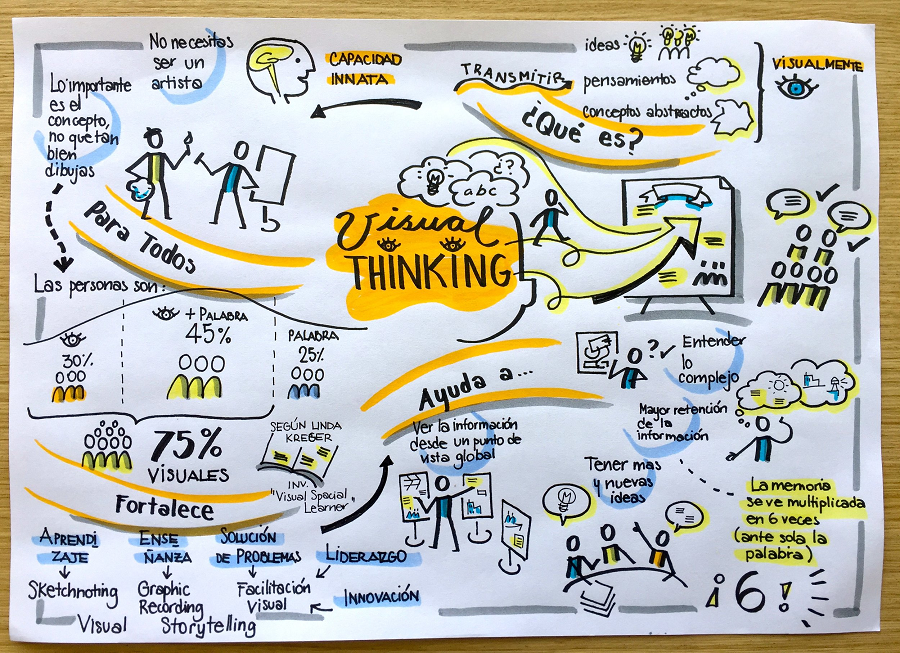 Visual
THINKING
abc
?
TRANSMITIR
ideas
pensamientos
conceptos abstractos
VISUALMENTE
¿Qué es?
CAPACIDAD
INNATA
No necesitas
ser un
artista
Lo importante
es el
concepto,
no que tan
bien
dibujas
Para Todos
Las personas son:
30%
+ PALABRA
45%
PALABRA
25%
75%
VISUALES
SEGÚN LINDA
KREGER
INV.
"Visual Spacial
Learner"
Fortalece
APRENDI
ZAJE
ENSE
ÑANZA
SOLUCIÓN
DE PROBLEMAS
LIDERAZGO
Sketchnoting
Graphic
Recording
Facilitación
Visual
INNOVACIÓN
Visual Storytelling
Ayuda a...
Ver la información
desde un punto de
vista global
?
Entender
lo
complejo
Mayor retención
de la
información
Tener mas
y nuevas
ideas
La memoria
se ve multiplicada
en 6 veces
(ante sola la
palabra)
¡6!